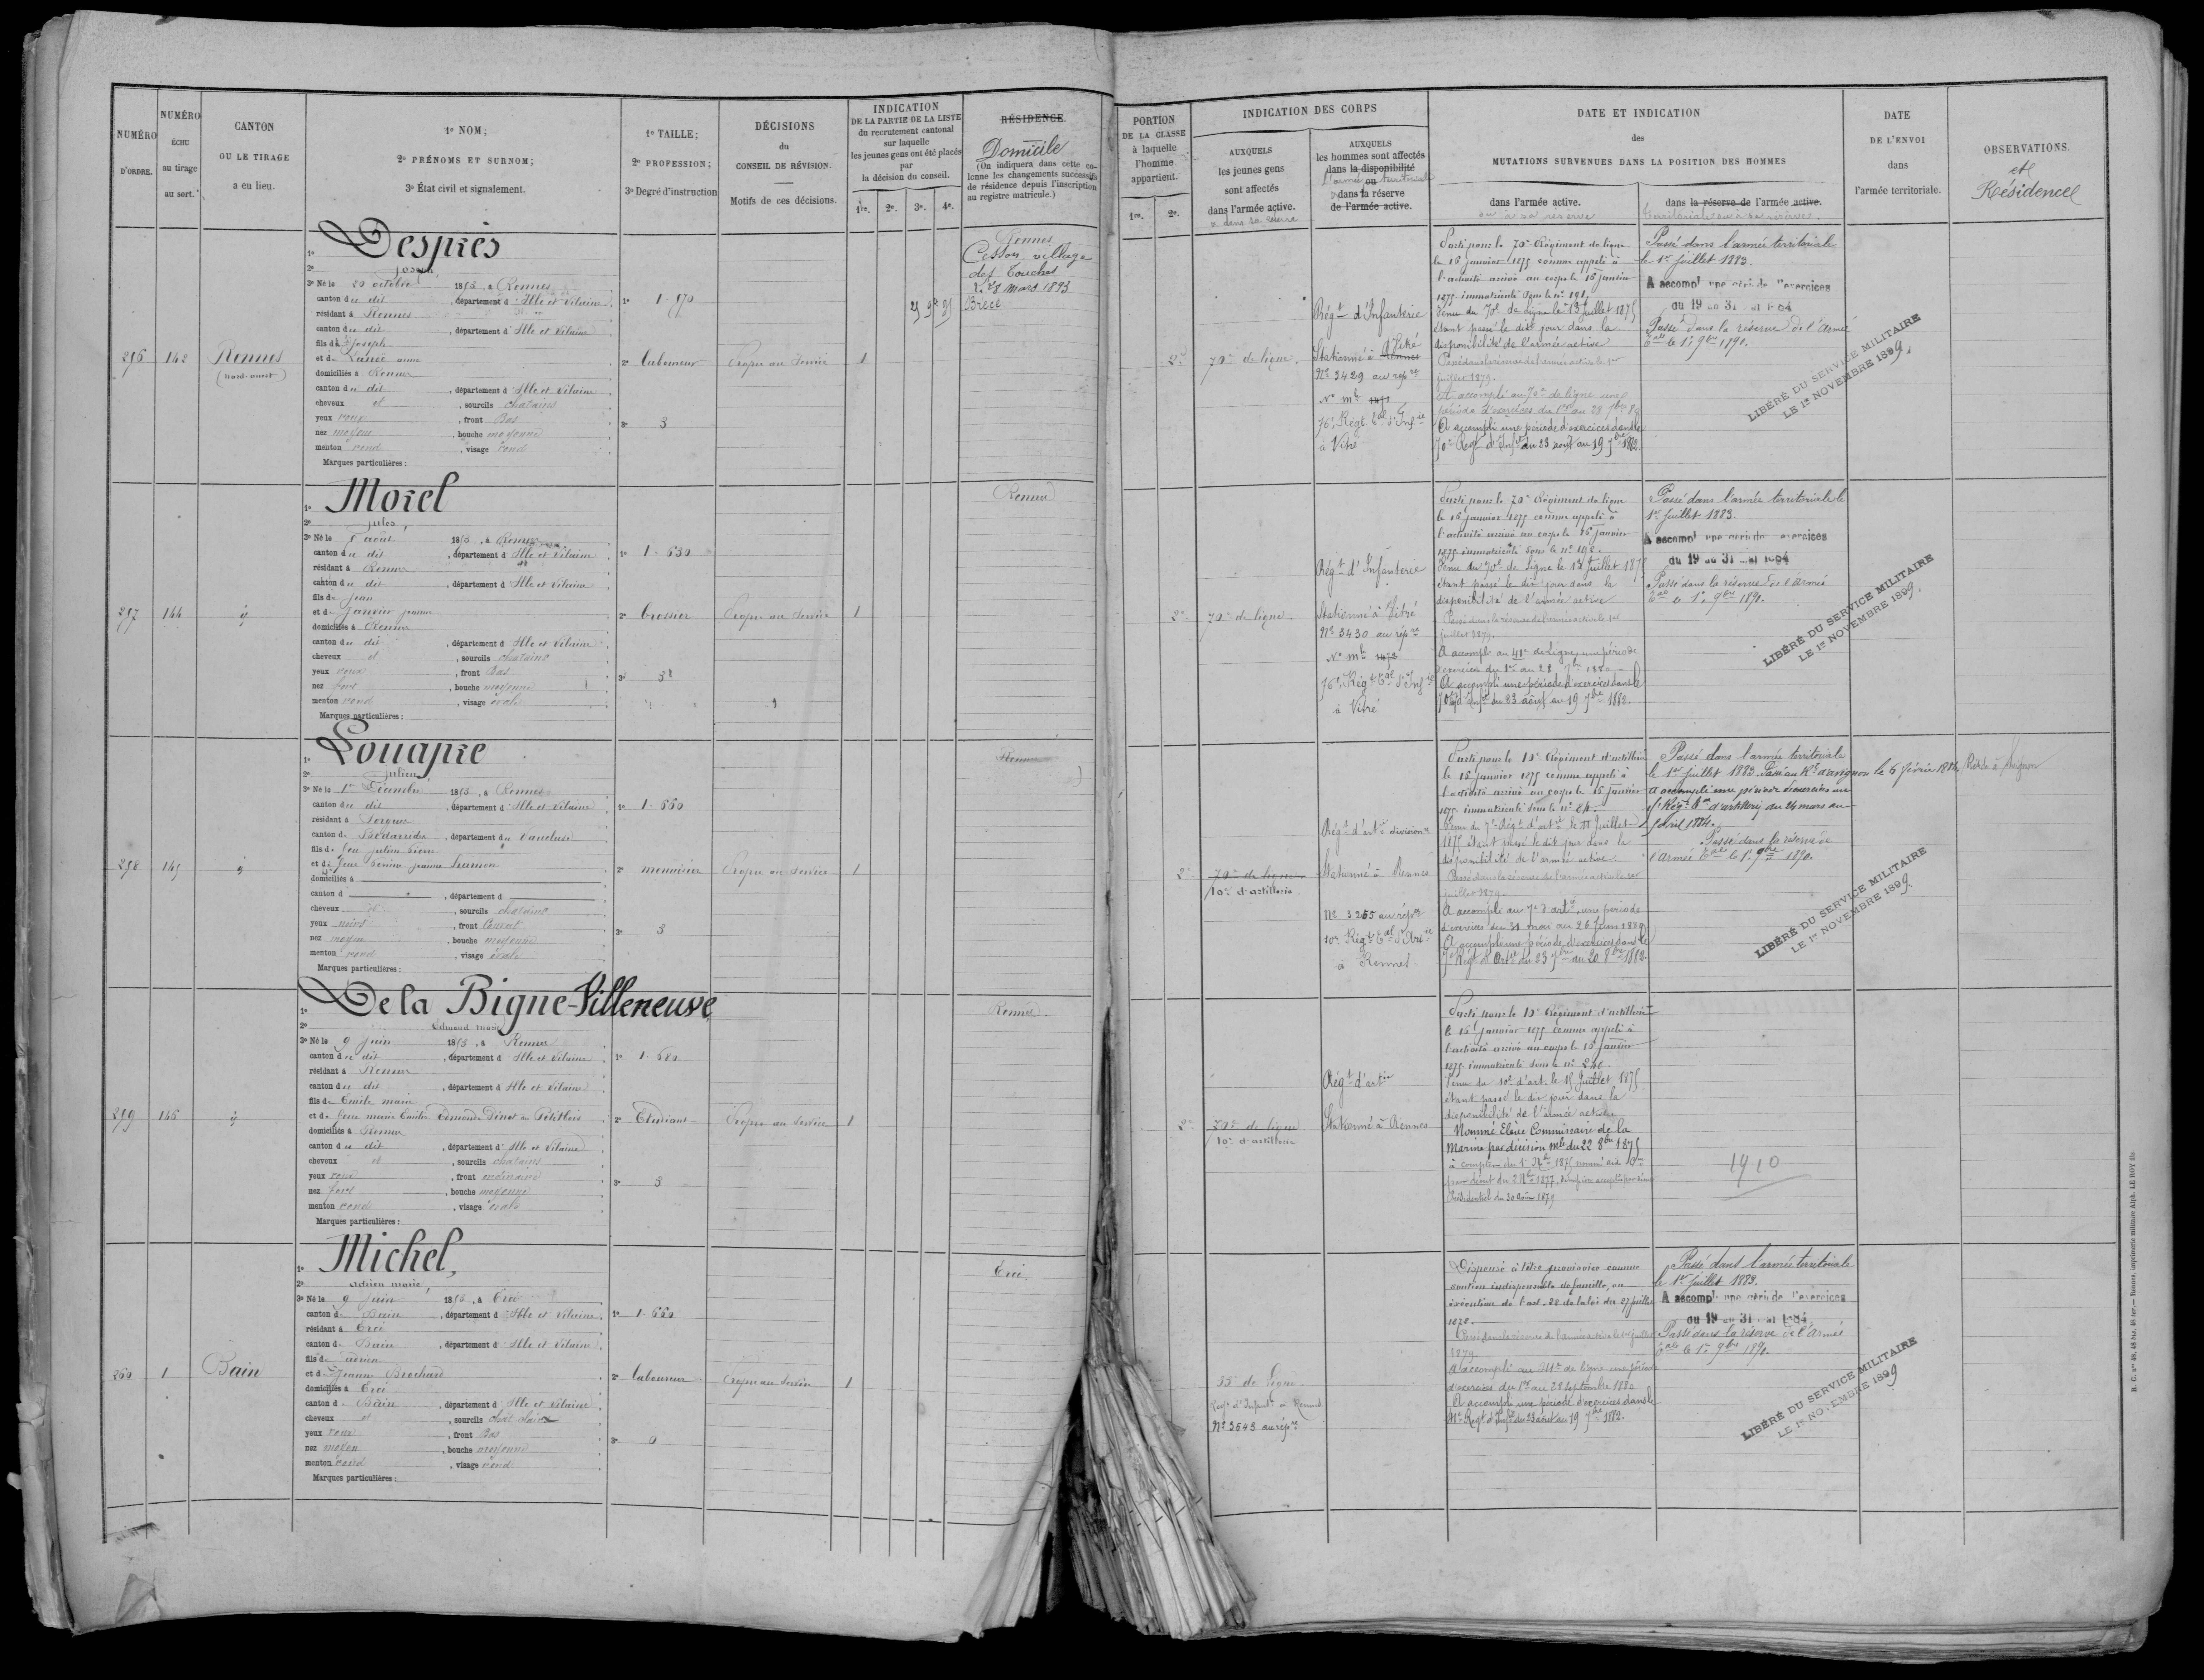 NUMÉRO D'ORDRE.
NUMÉRO échu au tirage au sort.
CANTON OU LE TIRAGE a eu lieu.
1º NOM;
2º PRÉNOMS ET SURNOM;
3º État civil et signalement.
1º TAILLE;
2º PROFESSION;
3º Degré d'instruction
DÉCISIONS du CONSEIL DE RÉVISION.
Motifs de ces décisions.
INDICATION DE LA PARTIE DE LA LISTE du recrutement cantonal sur laquelle les jeunes gens ont été placés par la décision du conseil.
1re. 2e. 3e. 4e.
RÉSIDENCE.
Domicile
(On indiquera dans cette colonne les changements successifs de résidence depuis l'inscription au registre matricule.)
PORTION DE LA CLASSE à laquelle l'homme appartient.
1re. 2e.
INDICATION DES CORPS
AUXQUELS les jeunes gens sont affectés dans l'armée active.
AUXQUELS les hommes sont affectés dans la disponibilité ou dans la réserve de l'armée active.
l'armée territoriale
DATE ET INDICATION
des
MUTATIONS SURVENUES DANS LA POSITION DES HOMMES
dans l'armée active.
ou sa réserve
dans la réserve de l'armée active.
territoriale ou sa réserve.
DATE DE L'ENVOI dans l'armée territoriale.
OBSERVATIONS.
et
Résidence
256
142
Rennes
(nord-ouest)
1º Després
2º Joseph
3º Né le 20 octobre 1853, à Rennes
canton du dit, département d'Ille et Vilaine
résidant à Rennes
canton du dit, département d'Ille et Vilaine
fils de Joseph
et de Lanée anne
domiciliés à Rennes
canton du dit, département d'Ille et Vilaine
cheveux et, sourcils chatains
yeux roux, front Bas
nez moyen, bouche moyenne
menton rond, visage rond
Marques particulières:
1º 1-570
2º laboureur
3º 3
Propre au Service
1
Rennes
Cesson village
des Touches
Le 28 Mars 1893
Brécé
2e
70e de ligne.
Régt d'Infanterie
Stationné à Vitré
Nº 3429 au répre
76e Régt tal d'Infie
à Vitré
Parti pour le 70e Régiment de ligne
le 15 janvier 1875 comme appelé à
l'activité arrivé au corps le 15 janvier
1875 immatriculé sous le nº 191
Venu du 70e de Ligne le 13 Juillet 1875
étant passé le dit jour dans la
disponibilité de l'armée active
Passé dans la réserve de l'armée active le 1er
juillet 1879.
A accompli au 70e de ligne une
période d'exercices du 1er au 28 7bre 80
A accompli une période d'exercices dans le
70e Regt d'Infie du 23 août au 19 7bre 1882.
Passé dans l'armée territoriale
le 1er Juillet 1883.
A accompli une période d'exercices
du 19 au 31 mai 1884
Passé dans la réserve de l'Armée
tale le 1er 9bre 1890.
LIBÉRÉ DU SERVICE MILITAIRE
LE 1er NOVEMBRE 1899.
257
144
1º Morel
2º Jules,
3º Né le 8 août 1853, à Rennes
canton du dit, département d'Ille et Vilaine
résidant à Rennes
canton du dit, département d'Ille et Vilaine
fils de Jean
et de Janvier jeanne
domiciliés à Rennes
canton du dit, département d'Ille et Vilaine
cheveux et, sourcils chatains
yeux roux, front Bas
nez fort, bouche moyenne
menton rond, visage ovale
Marques particulières:
1º 1-630
2º brossier
3º 3
Propre au Service
1
Rennes
2e
70e de ligne.
Régt d'Infanterie
Stationné à Vitré
Nº 3430 au répre
76e Régt tal d'Infie
à Vitré
Parti pour le 70e Régiment de ligne
le 15 janvier 1875 comme appelé à
l'activité arrivé au corps le 15 janvier
1875 immatriculé sous le nº 198.
Venu du 70e de Ligne le 13 Juillet 1875
étant passé le dit jour dans la
disponibilité de l'armée active
Passé dans la réserve de l'armée active le 1er
juillet 1879.
A accompli au 41e de Ligne, une période
d'exercices du 1er au 28 7bre 1880
A accompli une période d'exercices dans le
70e Regt d'Infie du 23 août au 19 7bre 1882.
Passé dans l'armée territoriale le
1er Juillet 1883.
A accompli une période d'exercices
du 19 au 31 mai 1884
Passé dans la réserve de l'Armée
tale le 1er 9bre 1890.
LIBÉRÉ DU SERVICE MILITAIRE
LE 1er NOVEMBRE 1899.
258
145
1º Louapre
2º Julien,
3º Né le 1er Décembre 1853, à Rennes
canton du dit, département d'Ille et Vilaine
résidant à Sorgues
canton de Bédarrides, département du Vaucluse
fils de feu Julien Pierre
et de feue Perrine Jeanne Hamon
domiciliés à
canton d, département d
cheveux, sourcils chatains
yeux noirs, front Couvert
nez moyen, bouche moyenne
menton rond, visage ovale
Marques particulières:
1º 1-660
2º menuisier
3º 3
Propre au Service
1
Rennes
2e
70e de ligne
10e d'artillerie
Régt d'artie divisionre
Stationné à Rennes
Nº 3265 au répre
10e Régt tal d'Artie
à Rennes
Parti pour le 10e Régiment d'artillerie
le 15 janvier 1875 comme appelé à
l'activité arrivé au corps le 15 janvier
1875 immatriculé sous le nº
Venu du 7e Régt d'artie le Juillet
1875 étant passé le dit jour dans la
disponibilité de l'armée active.
Passé dans la réserve de l'armée active le 1er
juillet 1879.
A accompli au 7e d'artie, une période
d'exercices du 31 mai au 26 Juin 1880
A accompli une période d'exercices dans le
7e Regt d'Artie du 23 7bre au 20 8bre 1882
Passé dans l'armée territoriale
le 1er Juillet 1883. Passé au Rt d'avignon le 6 février 1884
A accompli une période d'exercices au
Régt d'artillerie du 24 mars au
avril 1884.
Passé dans la réserve de
l'Armée tale le 1er 9bre 1890.
LIBÉRÉ DU SERVICE MILITAIRE
LE 1er NOVEMBRE 1899.
Réside à Avignon
259
146
1º De la Bigne-Villeneuve
2º Edmond Marie
3º Né le 9 Juin 1853, à Rennes
canton du dit, département d'Ille et Vilaine
résidant à Rennes
canton du dit, département d'Ille et Vilaine
fils de Emile marie
et de feue marie Emilie Edmonde Dinot du Petitbois
domiciliés à Rennes
canton du dit, département d'Ille et Vilaine
cheveux et, sourcils chatains
yeux roux, front ordinaire
nez fort, bouche moyenne
menton rond, visage ovale
Marques particulières:
1º 1-680
2º Etudiant
3º 3
Propre au Service
1
Rennes.
2e
70e de ligne
10e d'artillerie
Régt d'artie
Stationné à Rennes
Parti pour le 10e Régiment d'artillerie
le 15 janvier 1875 comme appelé à
l'activité arrivé au corps le 15 janvier
1875 immatriculé sous le nº 240
Venu du 10e d'art. le 15 Juillet 1875
étant passé le dit jour dans la
disponibilité de l'armée active.
Nommé Elève Commissaire de la
Marine par décision mlle du 22 8bre 1875
1910
260
1
Bain
1º Michel,
2º Adrien marie,
3º Né le 9 Juin 1853, à Ercé
canton de Bain, département d'Ille et Vilaine
résidant à Ercé
canton de Bain, département d'Ille et Vilaine
fils de Adrien
et de Jeanne Brochard
domiciliés à Ercé
canton de Bain, département d'Ille et Vilaine
cheveux et, sourcils chat. clairs
yeux roux, front Bas
nez moyen, bouche moyenne
menton rond, visage rond
Marques particulières:
1º 1-660
2º laboureur
3º 0
Propre au Service
1
Ercé.
35e de ligne
Régt d'Infantie à Rennes
Nº 3643 au répre
Dispensé à titre provisoire comme
soutien indispensable de famille, en
exécution de l'art. 22 de la loi du 27 juillet
1872.
Passé dans la réserve de l'armée active le 1er juillet
1879.
A accompli au 41e de ligne une période
d'exercices du 1er au 28 septembre 1880
A accompli une période d'exercices dans le
41e Regt d'Infie du 23 août au 19 7bre 1882.
Passé dans l'armée territoriale
le 1er Juillet 1883.
A accompli une période d'exercices
du 19 au 31 mai 1884
Passé dans la réserve de l'Armée
tale le 1er 9bre 1890.
LIBÉRÉ DU SERVICE MILITAIRE
LE 1er NOVEMBRE 1899
Rennes, imprimerie militaire Alph. LE ROY fils